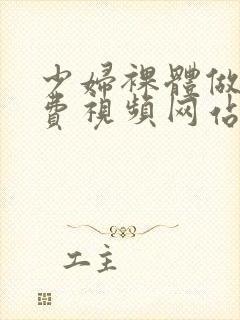 少婦裸體做
費視頻网佔
工主